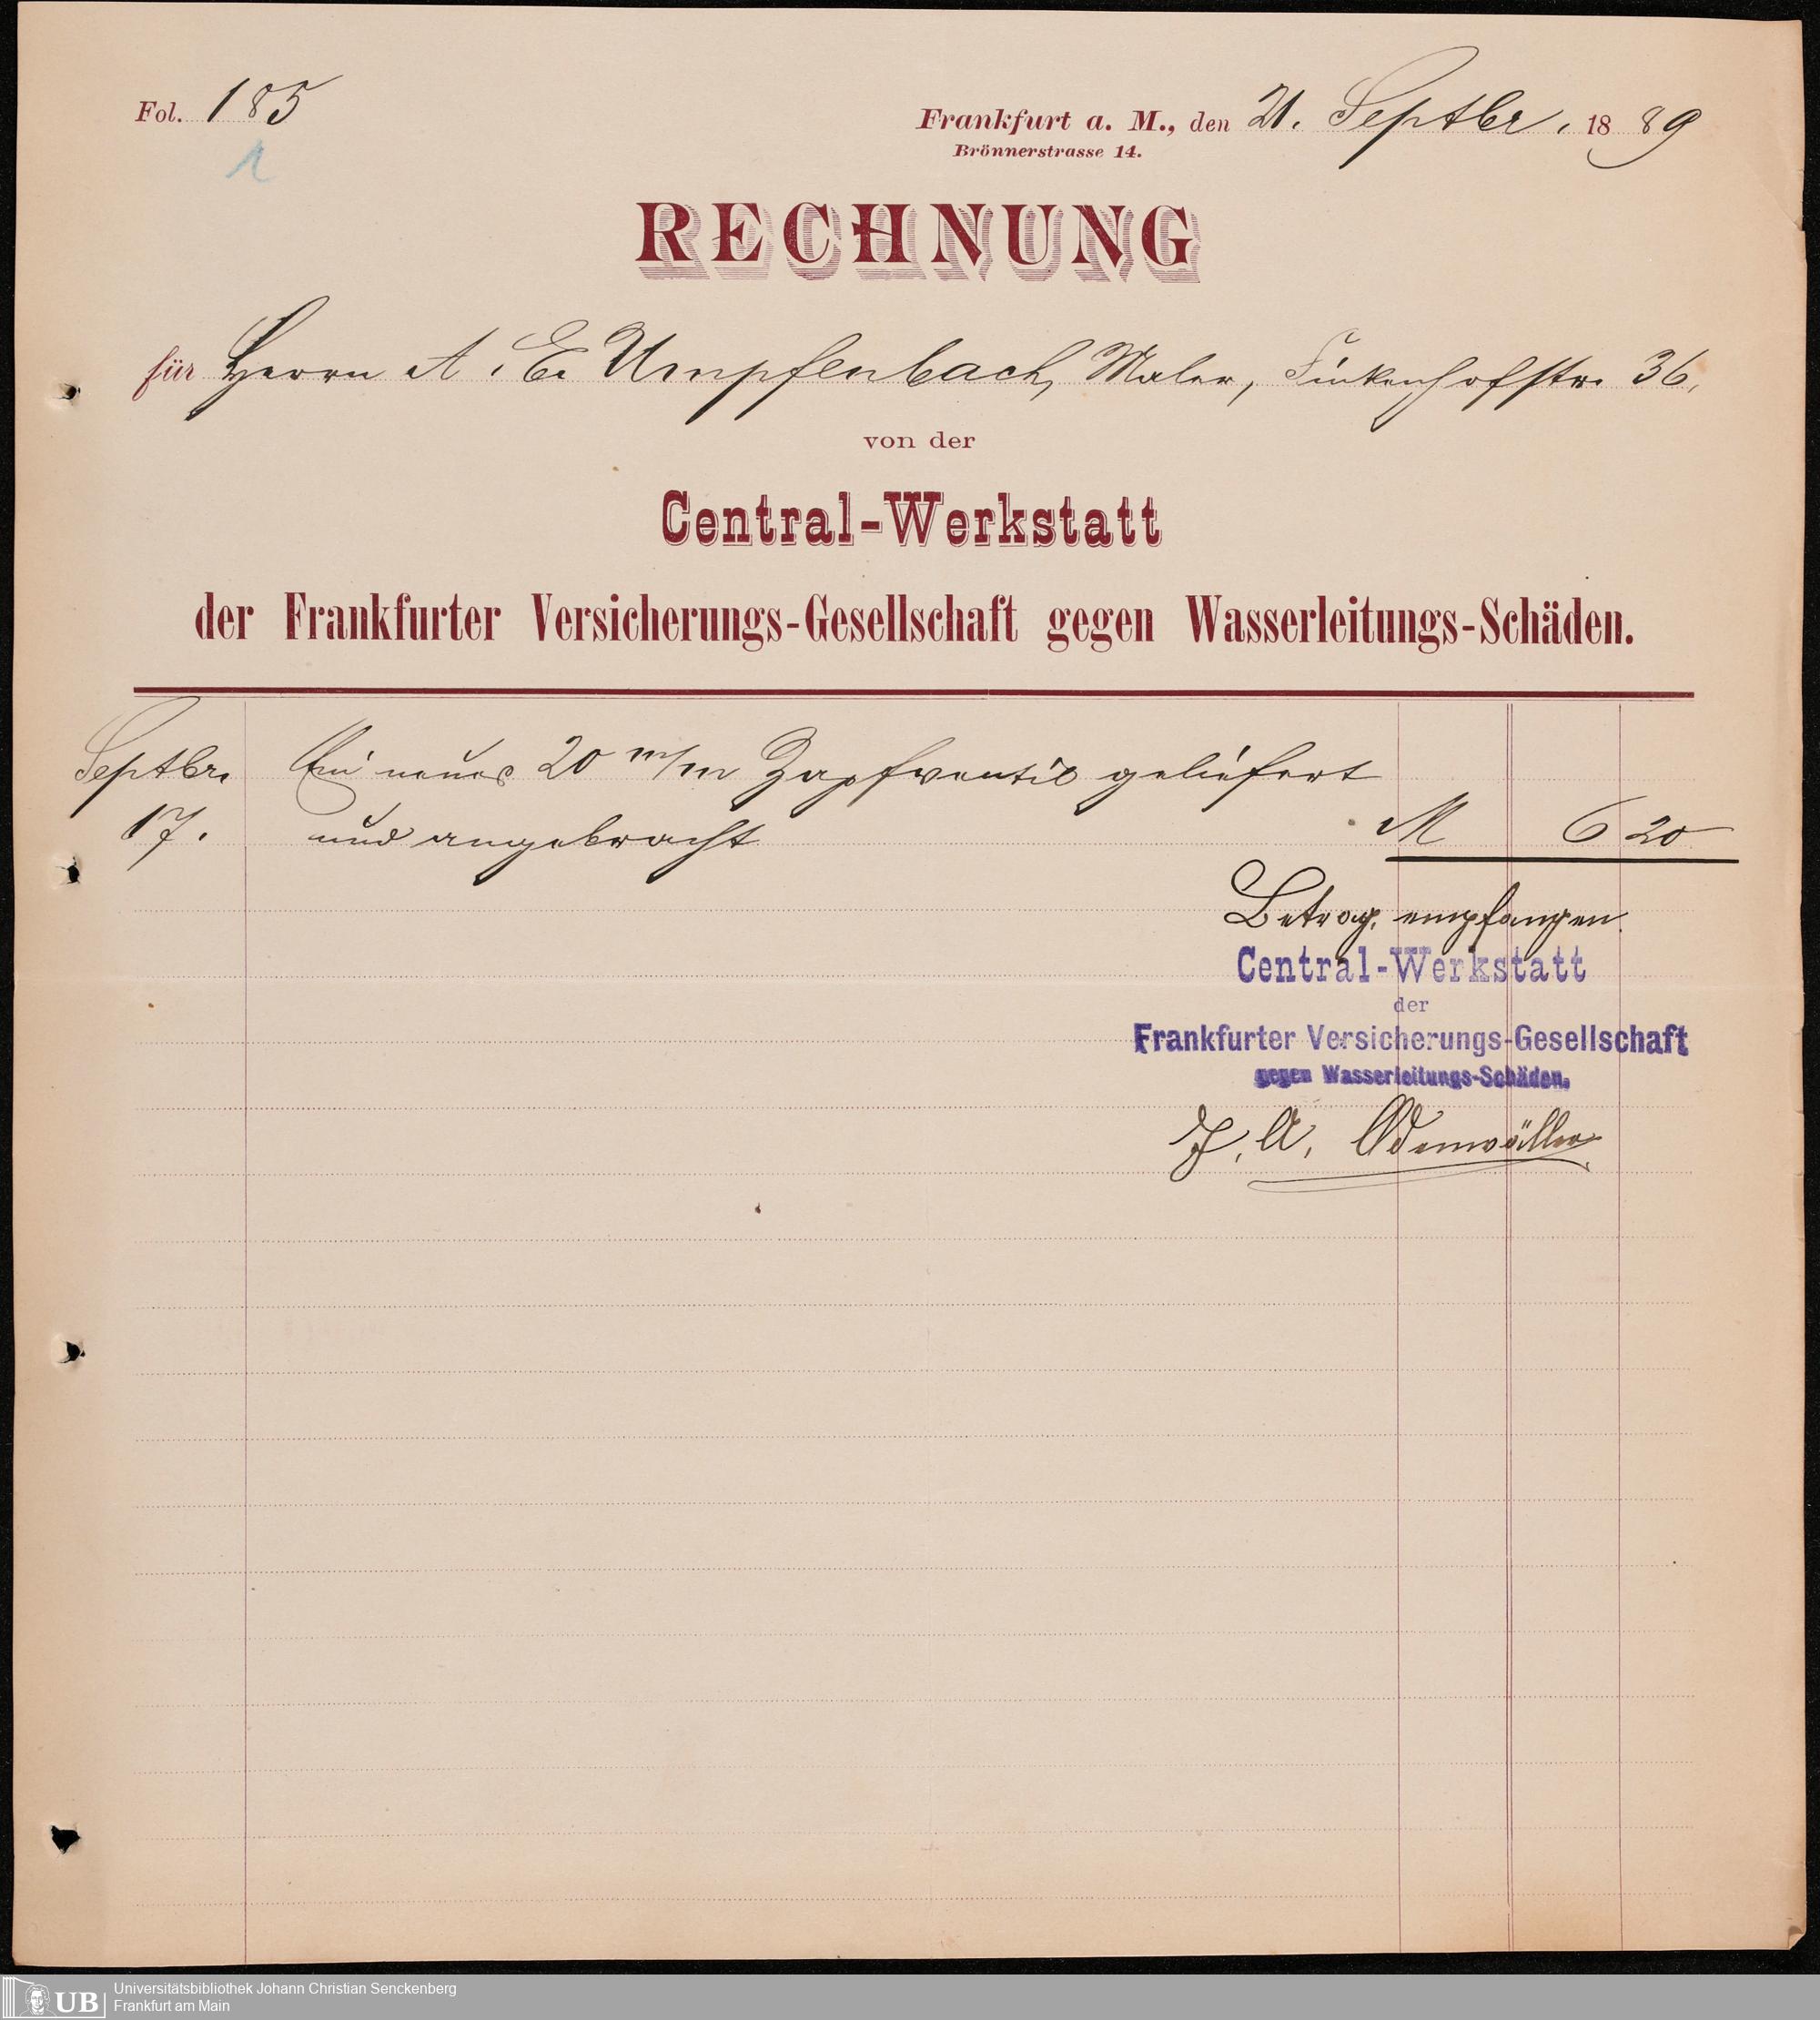 Fol. 185
Frankfurt a. M., den 21. Septbr. 1889
Brönnerstrasse 14.
1
RECHNUNG
für Herrn A. E. Umpfenbach, Maler, Finkenhofstr. 36,
von der
Central-Werkstatt
der Frankfurter Versicherungs-Gesellschaft gegen Wasserleitungs-Schäden.
Septbr. Ein neues 20 m/m Zapfventil geliefert
17. und angebracht M 6 20
Betrag empfangen.
Central-Werkstatt
der
Frankfurter Versicherungs-Gesellschaft
gegen Wasserleitungs-Schäden.
J. A. Odenwäller
UB Universitätsbibliothek Johann Christian Senckenberg
Frankfurt am Main